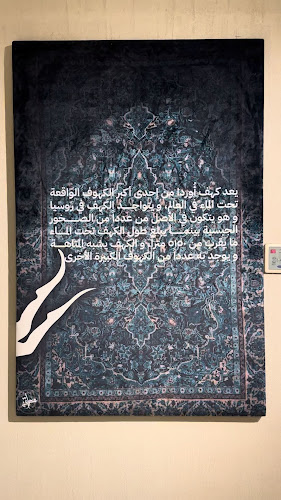 يعد كهف أوردا من إحدى أكبر الكهوف الواقعة
تحت الماء في العالم، و يتواجد الكهف في روسيا
و هو يتكون في الأصل من عددا من الصخور
الجبسية بينما يبلغ طول الكهف تحت الماء
ما يقرب من ٥١٥٠ متراً و الكهف يشبه المتاهة
و يوجد به عددا من الكهوف الكبيرة الأخرى